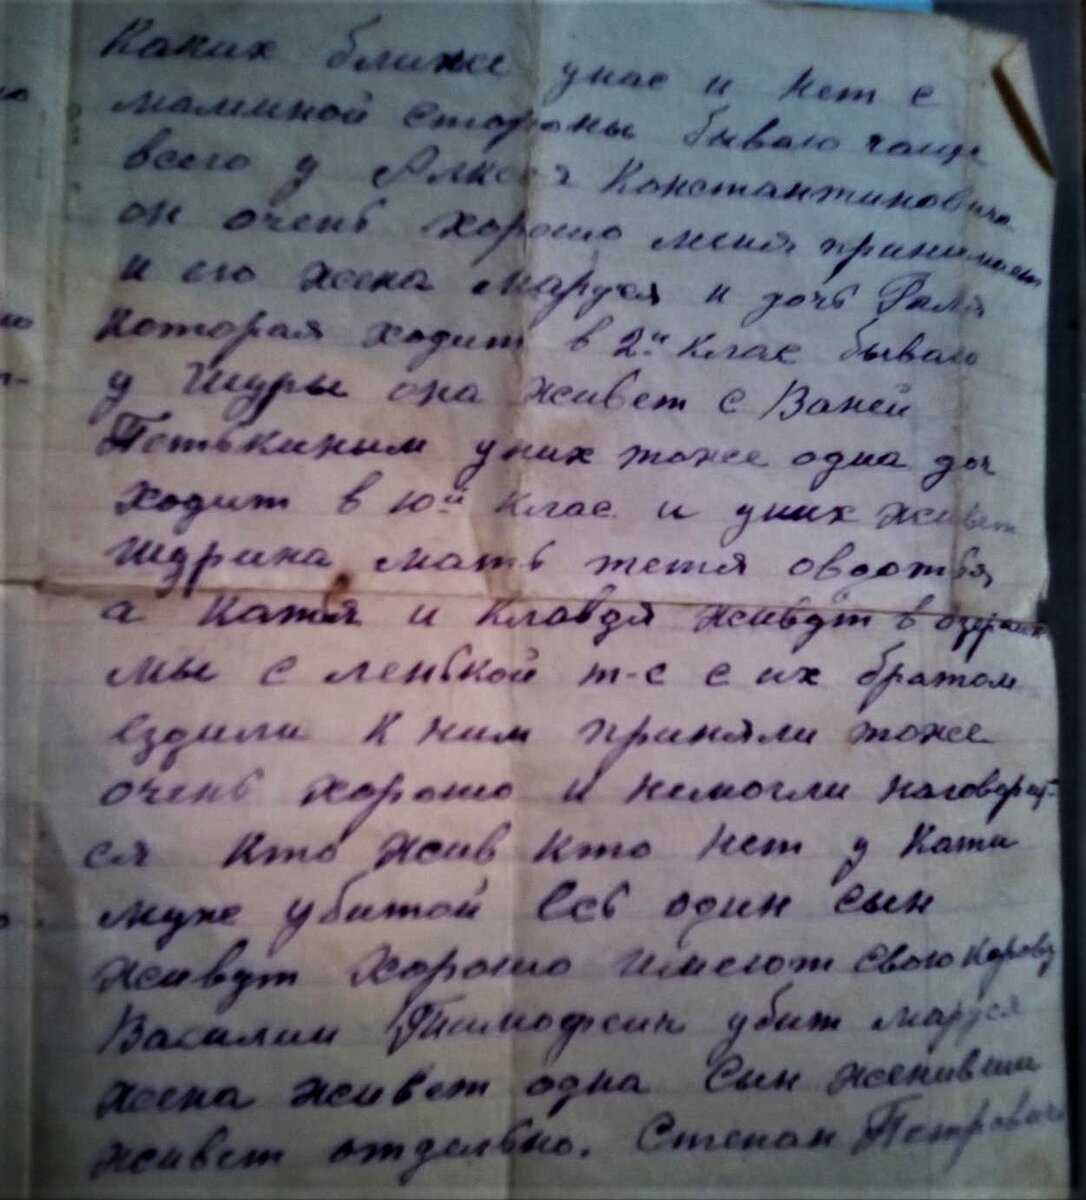 Каких ближе унас и нет с
маминой стороны бываю чаще
всего у Алксея Константиновича
он очень хорошо меня принимает
и его жена Маруся и дочь Галя
которая ходит в 2й клас бываю
у Шуры она живет с Ваней
Петькиным уних тоже одна доч
ходит в 10й клас и уних живет
Шурина мать тетя овдотья
а Катя и Клавдя живут в озерках
мы с ленькой т-с с их братом
ездили к ним приняли тоже
очень хорошо и немогли наговорит-
ся кто жив кто нет у Кати
муже убитой Есь один сын
живут хорошо имеют свою корову
Василий Тимофеич убит маруся
жена живет одна Сын женивши
живет отдельно. Степан Петрович